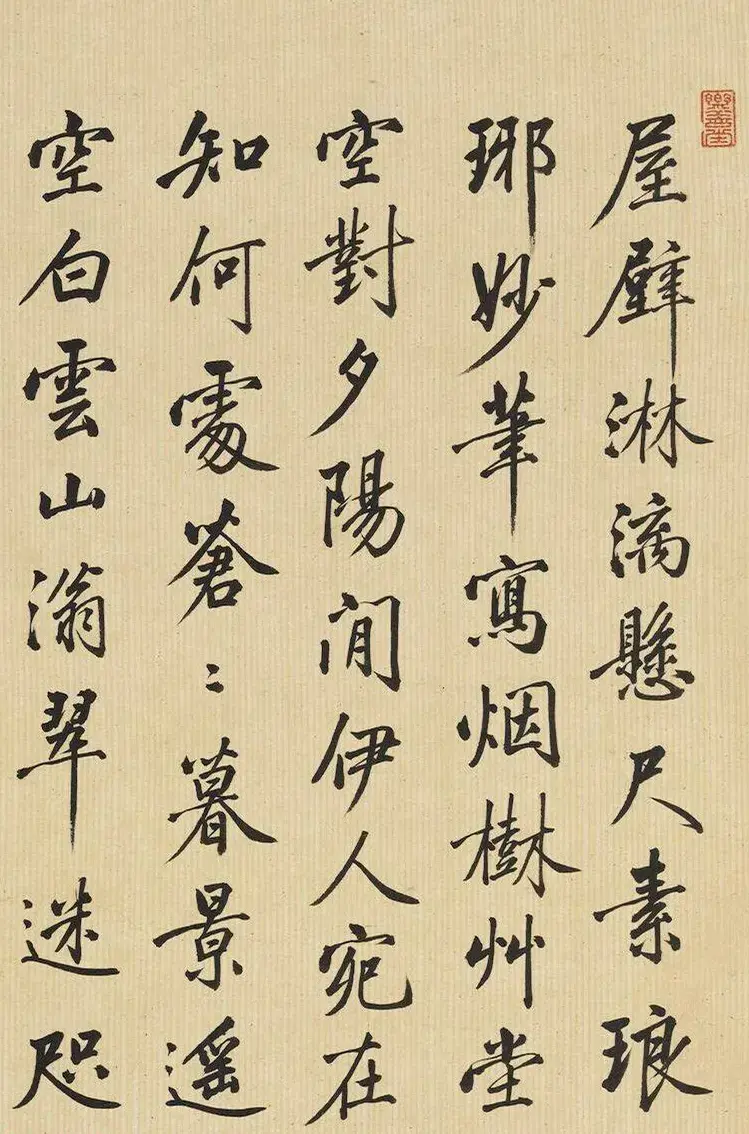 樂善堂
屋壁淋漓懸尺素琅
琊妙筆寫烟樹艸堂
空對夕陽間伊人宛在
知何處蒼〻暮景遥
空白雲山滃翠迷咫